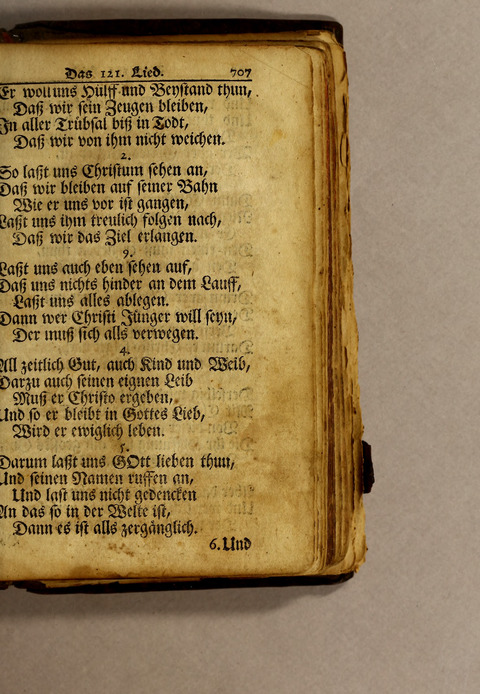 Das 121. Lied. 707
Er woll uns Hülff und Beystand thun,
Daß wir sein Zeugen bleiben,
In aller Trübsal biß in Todt,
Daß wir von ihm nicht weichen.
2.
So laßt uns Christum sehen an,
Daß wir bleiben auf seiner Bahn
Wie er uns vor ist gangen,
Laßt uns ihm treulich folgen nach,
Daß wir das Ziel erlangen.
9.
Laßt uns auch eben sehen auf,
Daß uns nichts hinder an dem Lauff,
Laßt uns alles ablegen.
Dann wer Christi Jünger will seyn,
Der muß sich alls verwegen.
4.
All zeitlich Gut, auch Kind und Weib,
Darzu auch seinen eignen Leib
Muß er Christo ergeben,
Und so er bleibt in Gottes Lieb,
Wird er ewiglich leben.
5.
Darum laßt uns GOtt lieben thun,
Und seinen Namen ruffen an,
Und last uns nicht gedencken
An das so in der Welte ist,
Dann es ist alls zergänglich.
6. Und